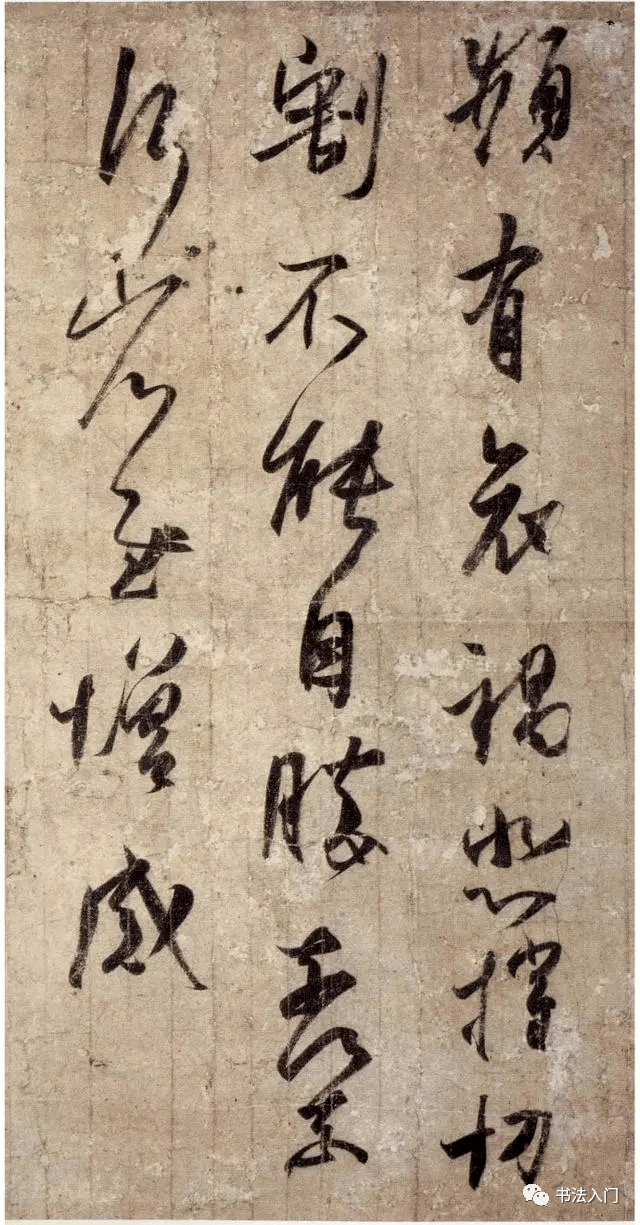 频有哀禍悲摧切
割不能自勝奈何奈
何省慰增感
书法入门